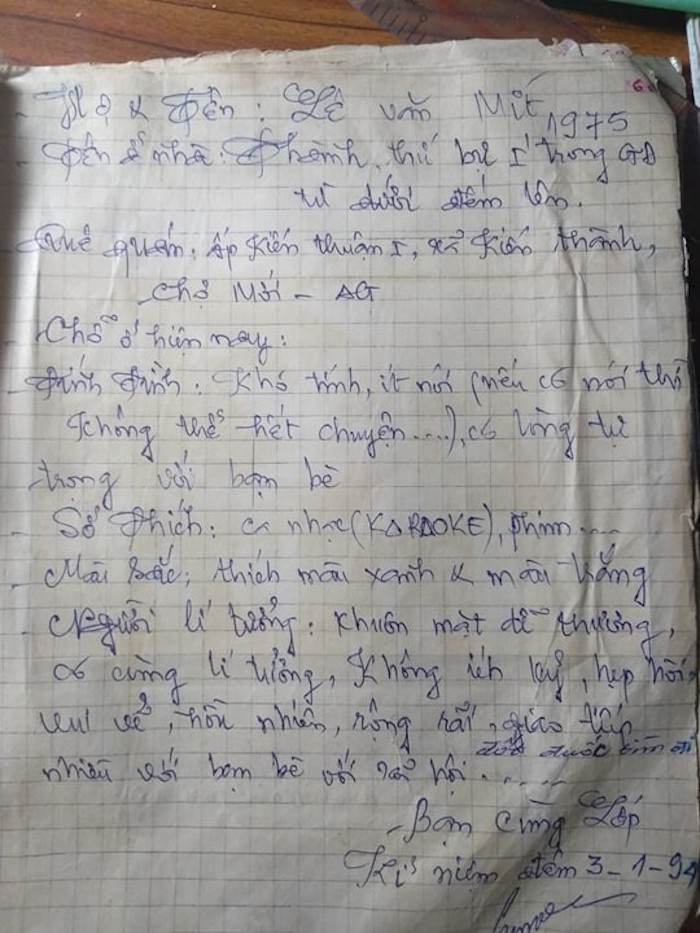 - Họ & Tên : Lê văn Mít 1975
- Tên ở nhà : Thành, thứ bự I trong GĐ
từ dưới đếm lên.
Quê quán, ấp Kiến thuận I, xã Kiến thành,
Chợ Mới - AG
- Chỗ ở hiện nay :
- Tính Tình : Khó tính, ít nói (nếu có nói thì
không thể hết chuyện....), có lòng tự
trọng với bạn bè
- Sở thích : ca nhạc (KARAOKE), phim....
- Màu sắc ; thích màu xanh & màu trắng
- Người lí tưởng : Khuôn mặt dễ thương,
có cùng lí tưởng, không ích kỷ, hẹp hòi,
vui vẻ, hồn nhiên, rộng rãi, giao tiếp
nhiều với bạn bè với xã hội......
- Bạn cùng Lớp
Kỉ niệm đêm 3-1-94